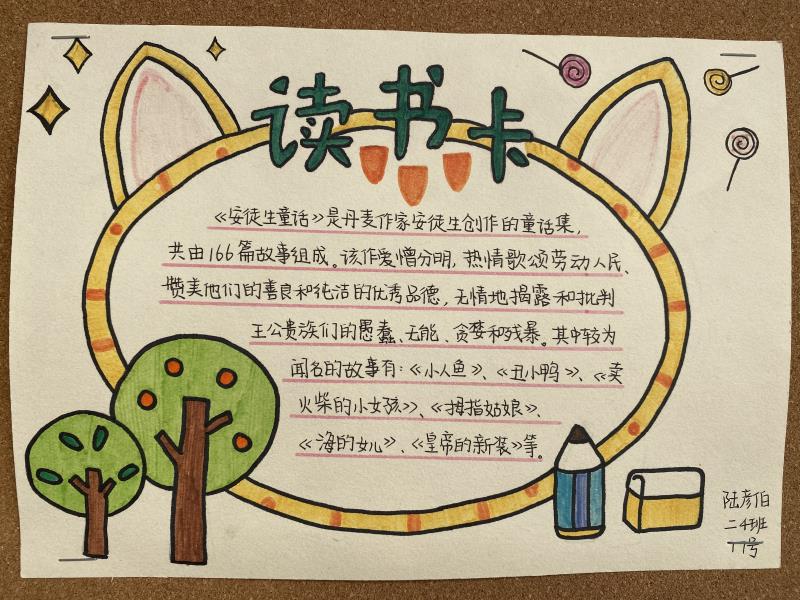 读书卡
《安徒生童话》是丹麦作家安徒生创作的童话集,
共由166篇故事组成。该作爱憎分明,热情歌颂劳动人民、
赞美他们的善良和纯洁的优秀品德,无情地揭露和批判
王公贵族们的愚蠢、无能、贪婪和残暴。其中较为
闻名的故事有:《小人鱼》、《丑小鸭》、《卖
火柴的小女孩》、《拇指姑娘》、
《海的女儿》、《皇帝的新装》等。
陆彦伯
二4班
11号